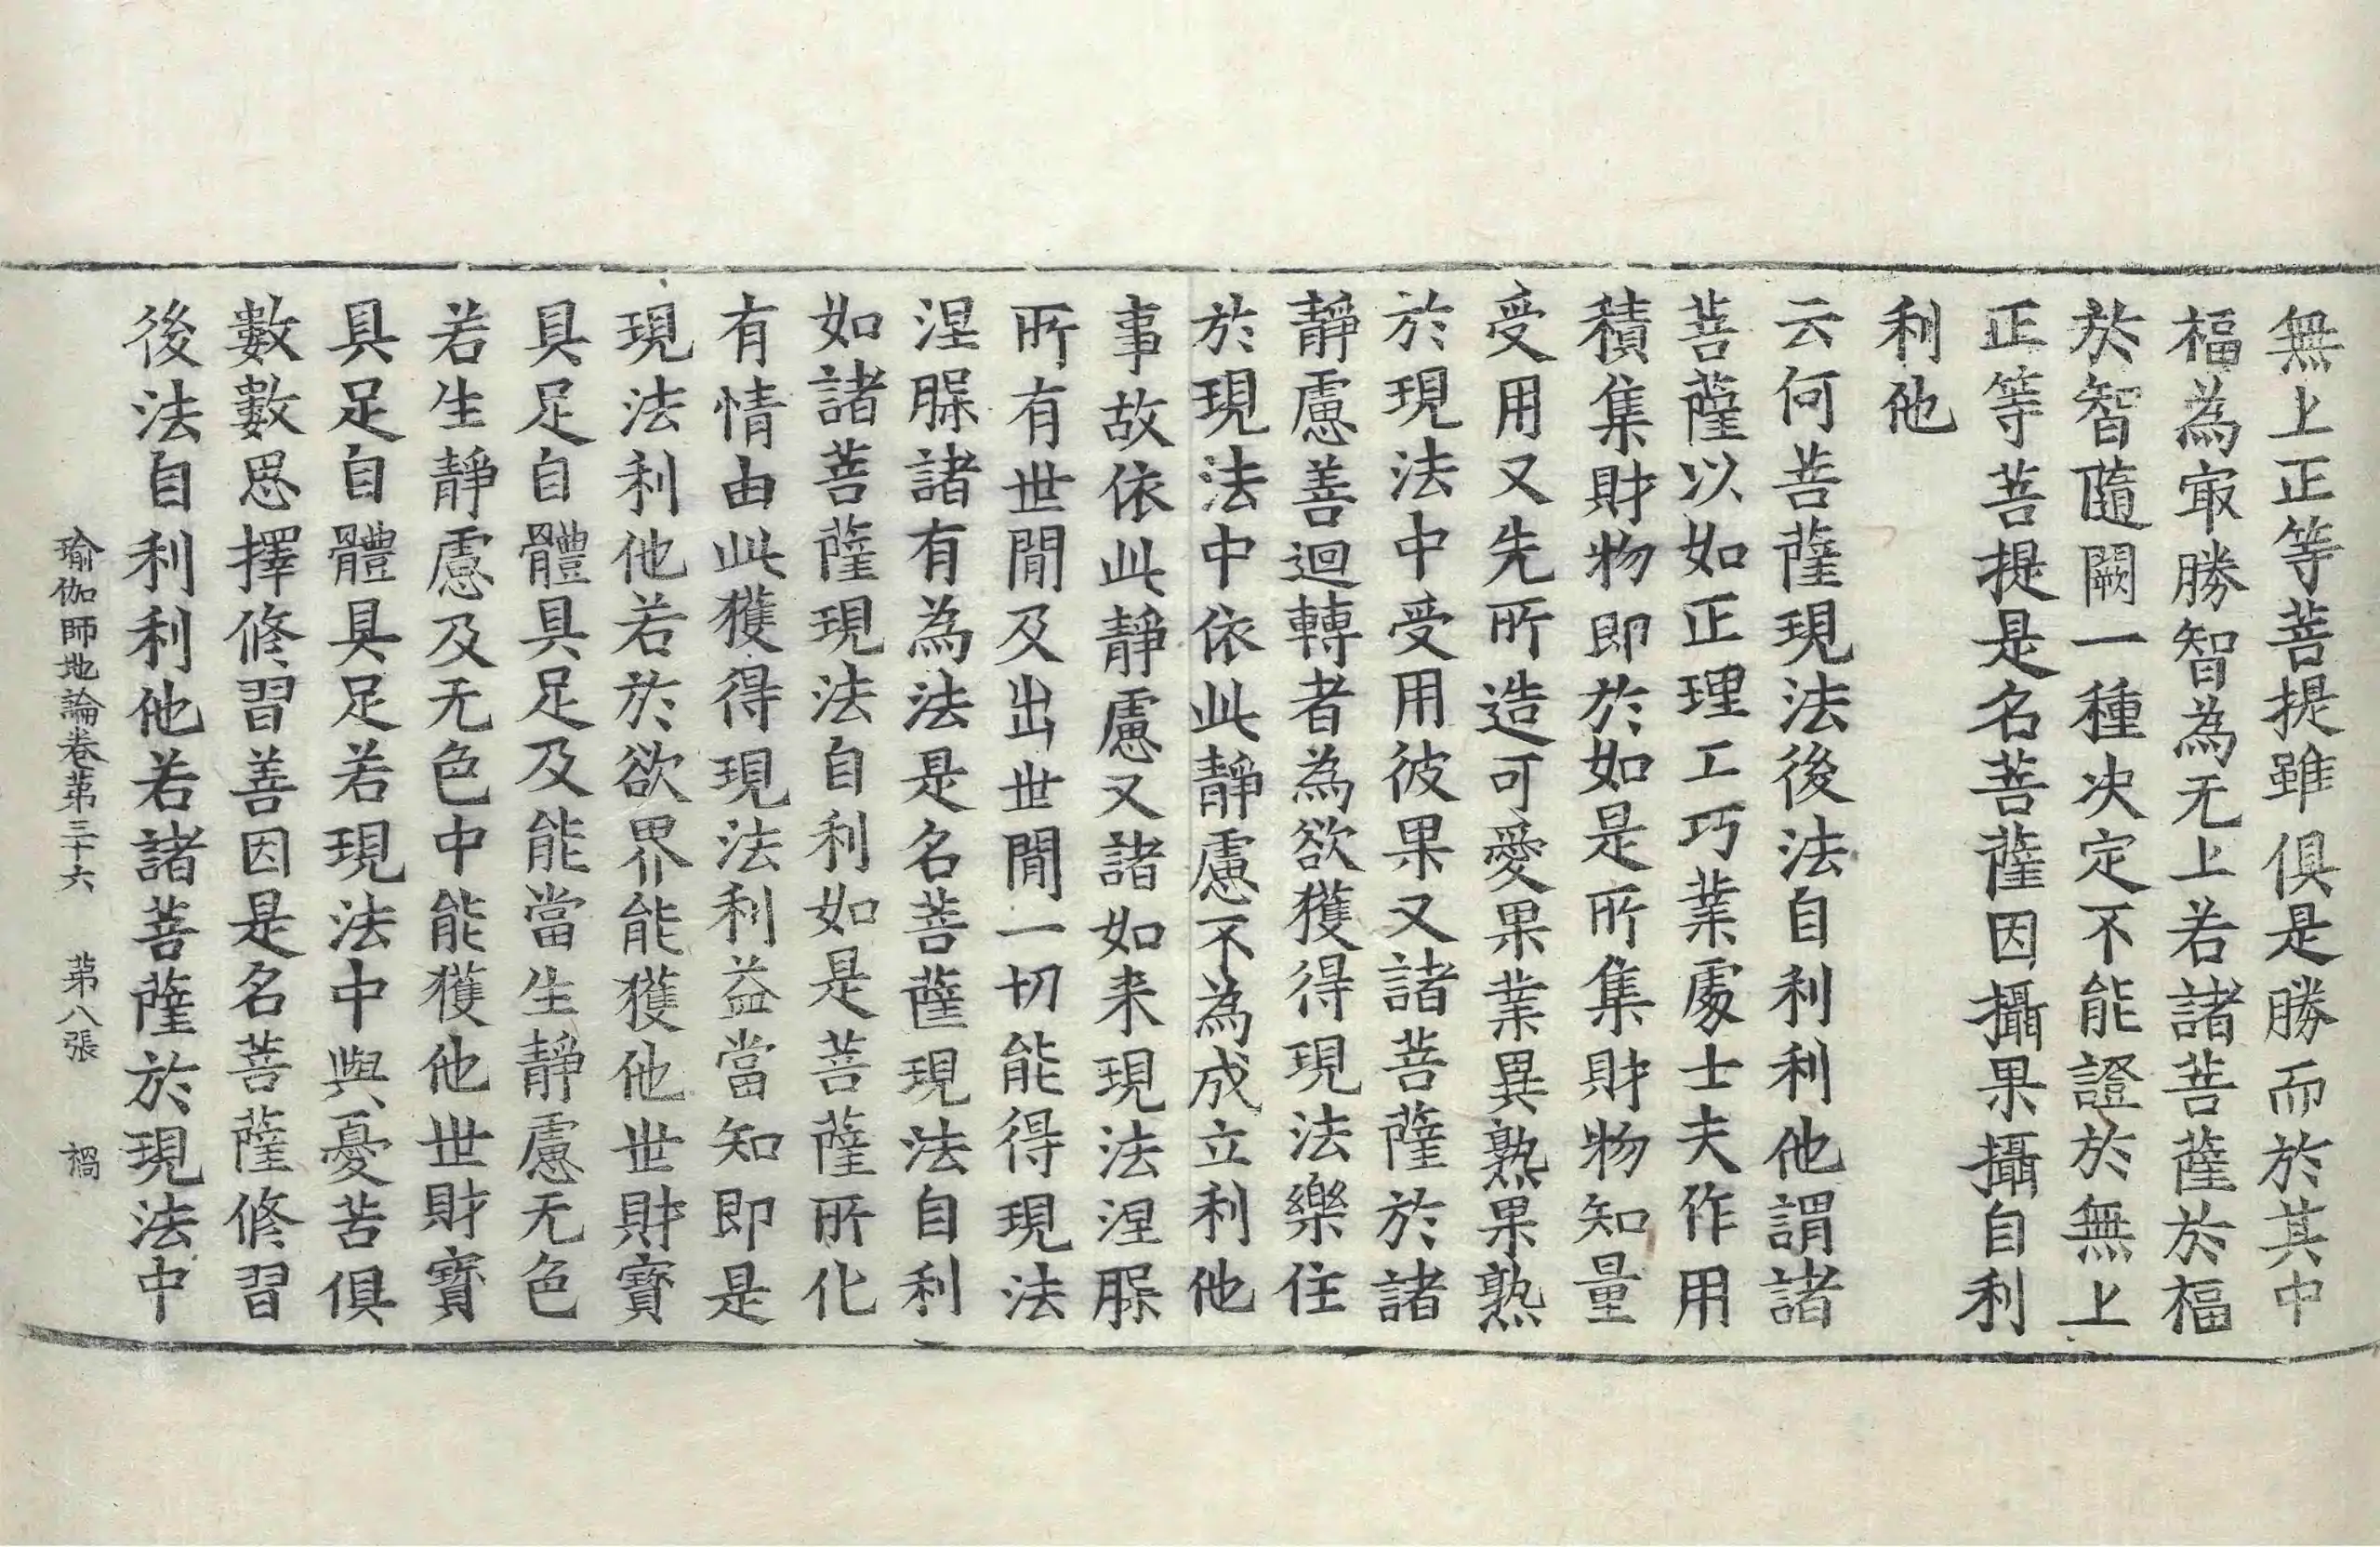 無上正等菩提雖俱是勝而於其中
福為㝡勝智為无上若諸菩薩於福
於智隨闕一種决定不能證於無上
正等菩提是名菩薩因攝果攝自利
利他
云何菩薩現法後法自利利他謂諸
菩薩以如正理工巧業處士夫作用
積集財物即於如是所集財物知量
受用又先所造可愛果業異熟果熟
於現法中受用彼果又諸菩薩於諸
靜慮善迴轉者為欲獲得現法樂住
於現法中依此靜慮不為成立利他
事故依此靜慮又諸如来現法涅槃
所有世間及出世間一切能得現法
涅槃諸有為法是名菩薩現法自利
如諸菩薩現法自利如是菩薩所化
有情由此獲得現法利益當知即是
現法利他若於欲界能獲他世財寶
具足自體具足及能當生靜慮无色
若生靜慮及无色中能獲他世財寶
具足自體具足若現法中與憂苦俱
數數思擇修習善因是名菩薩修習
後法自利利他若諸菩薩於現法中
瑜伽師地論卷苐三十六 苐八張 禍